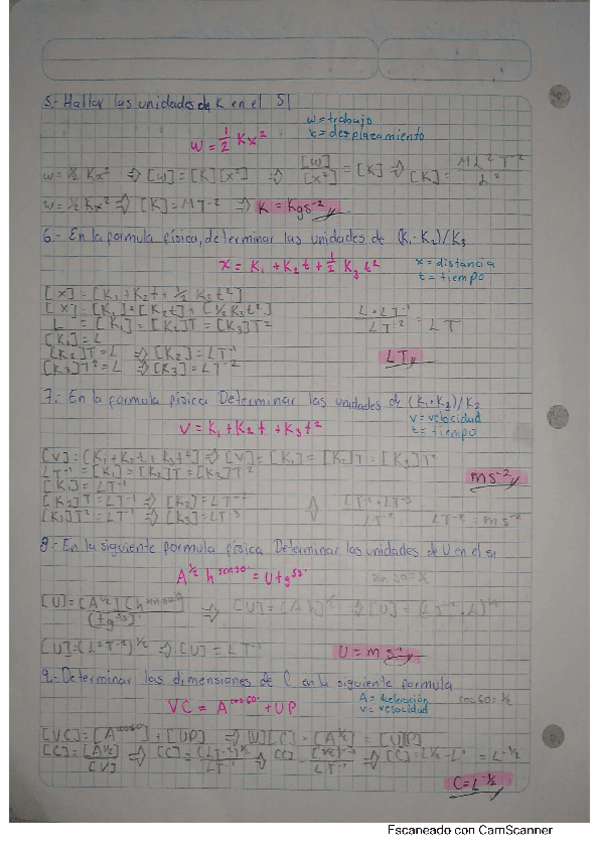 5.- Hallar las unidades de K en el SI
w = trabajo
x = desplazamiento
W = 1/2 Kx²
w = ½ Kx² => [w] = [K][x²] => [w]/[x²] = [K] => [K] = ML²T⁻²/L²
w = ½ Kx² => [K] = MT⁻² => K = Kgs⁻²
6.- En la formula física, determinar las unidades de (K₁·K₂)/K₃
x = K₁ + K₂t + 1/2 K₃t²
x = distancia
t = tiempo
[x] = [K₁ + K₂t + ½ K₃t²]
[x] = [K₁] + [K₂t] + [½ K₃t²]
L = [K₁] = [K₂]T = [K₃]T²
[K₁] = L
[K₂]T = L => [K₂] = LT⁻¹
[K₃]T² = L => [K₃] = LT⁻²
L·LT⁻¹/LT⁻² = LT
LT
7.- En la formula física Determinar las unidades de (K₁·K₃)/K₂
v = velocidad
t = tiempo
v = K₁ + K₂t + K₃t²
[v] = [K₁ + K₂t + K₃t²] => [v] = [K₁] = [K₂]T = [K₃]T²
LT⁻¹ = [K₁] = [K₂]T = [K₃]T²
[K₁] = LT⁻¹
[K₂]T = LT⁻¹ => [K₂] = LT⁻²
[K₃]T² = LT⁻¹ => [K₃] = LT⁻³
LT⁻¹·LT⁻³/LT⁻² LT⁻² = ms⁻²
ms⁻²
8.- En la siguiente formula física Determinar las unidades de U en el SI
A^½ h^sen30° = U tg^53°
sen 30 = ½
[U] = [A^½][h^sen30]/(tg⁵³) => [U] = [A h]^½ => [U] = (LT⁻²·L)^½
[U] = (L²T⁻²)^½ => [U] = LT⁻¹
U = ms⁻¹
9.- Determinar las dimensiones de C en la siguiente formula
VC = A^cos60° + UP
V = velocidad
cos 60 = ½
[VC] = [A^cos60] + [UP] => [V][C] = [A^½] = [U][P]
[C] = [A^½]/[V] => [C] = (LT⁻²)^½/LT⁻¹
C = L^-½
Escaneado con CamScanner